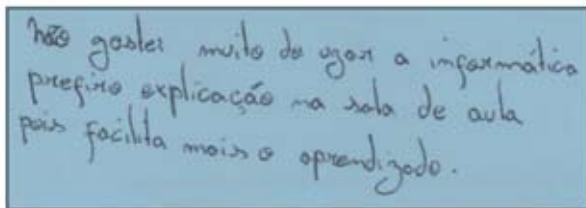 não gostei muito de usar a informática
prefiro explicação na sala de aula
pois facilita mais o aprendizado.